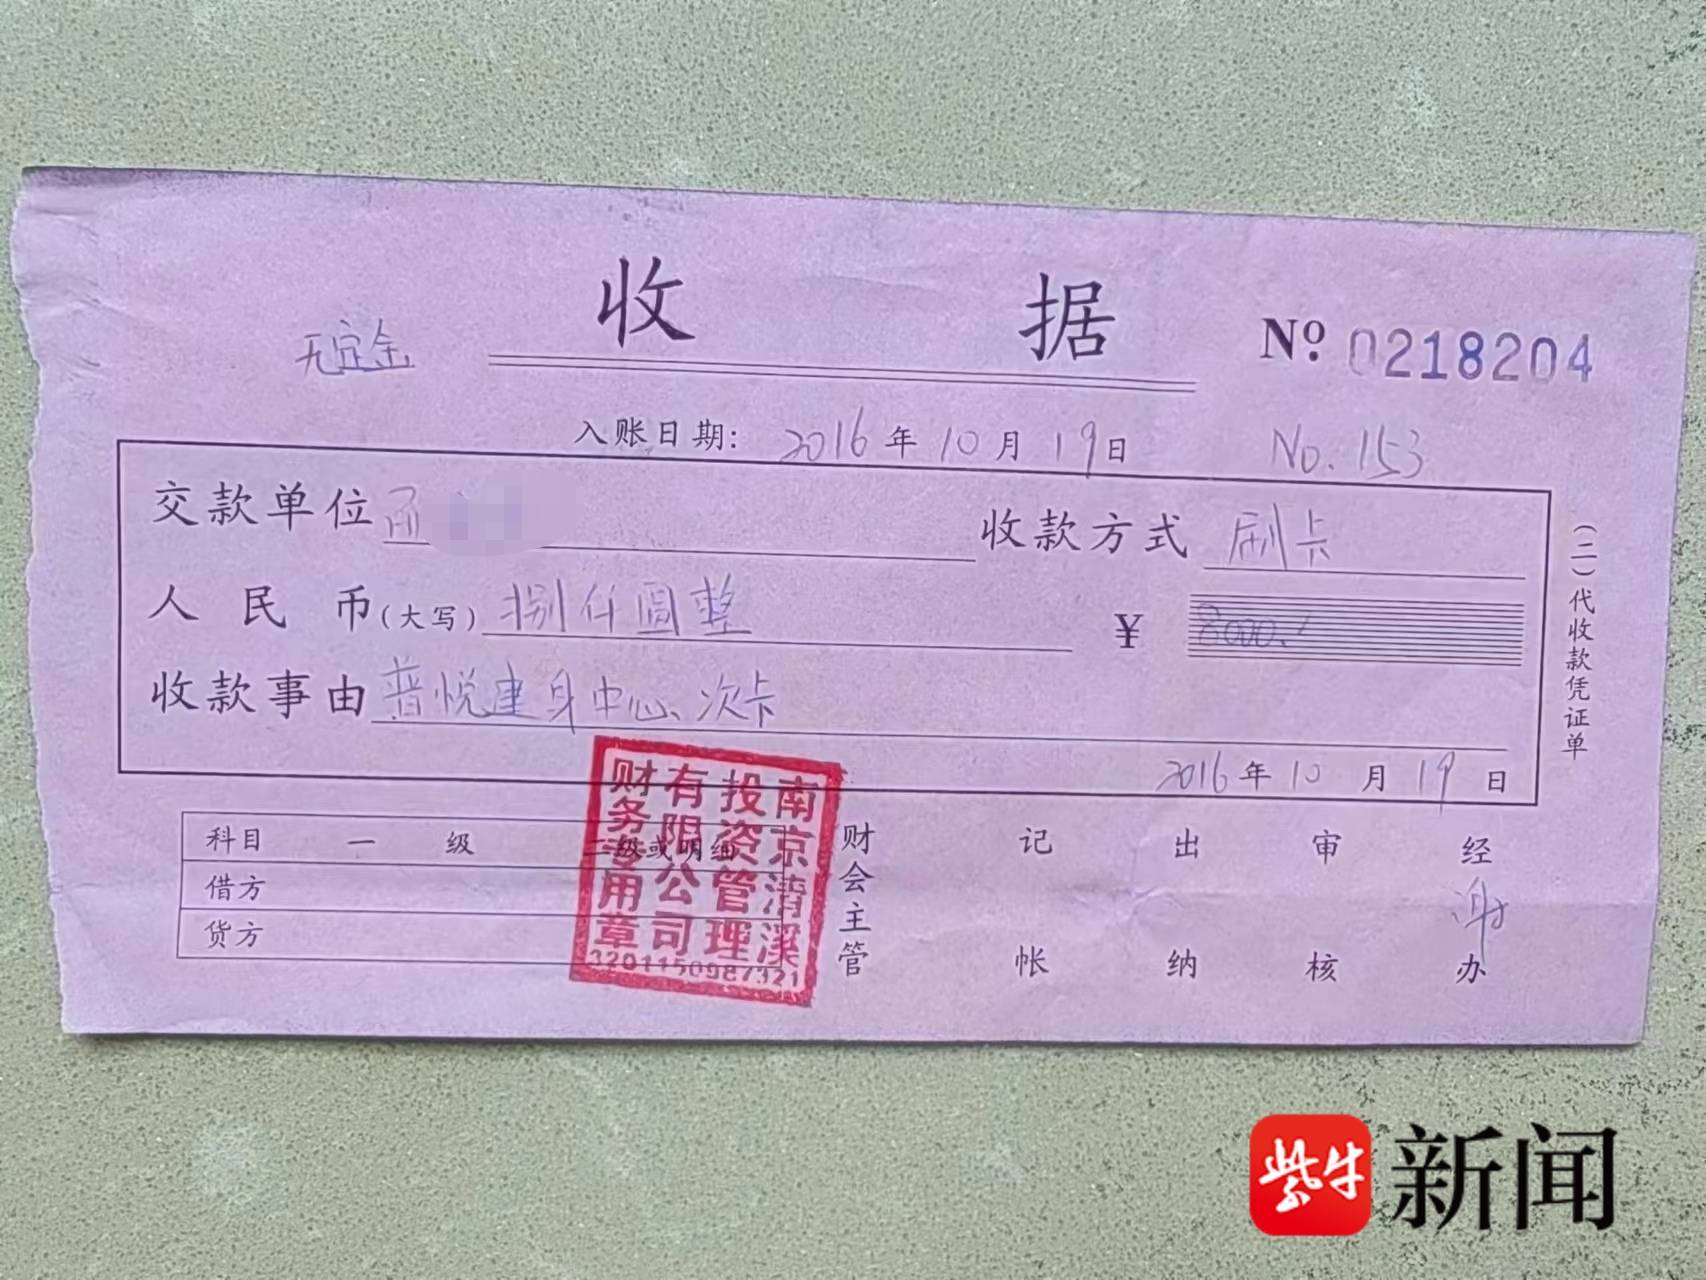 收 据
无定金
No. 0218204
入账日期: 2016 年 10 月 19 日 No. 153
交款单位 收款方式 刷卡
人民币(大写) 捌仟圆整 ¥ 8000.
收款事由 普悦健身中心、次卡
2016 年 10 月 19 日
(二)代收款凭证单
科目 一级 二级或明细
借方
货方
财会主管 记帐 出纳 审核 经办 谢
南京清溪
投资管理
有限公司
财务专用章
3201150987321
紫牛 新闻